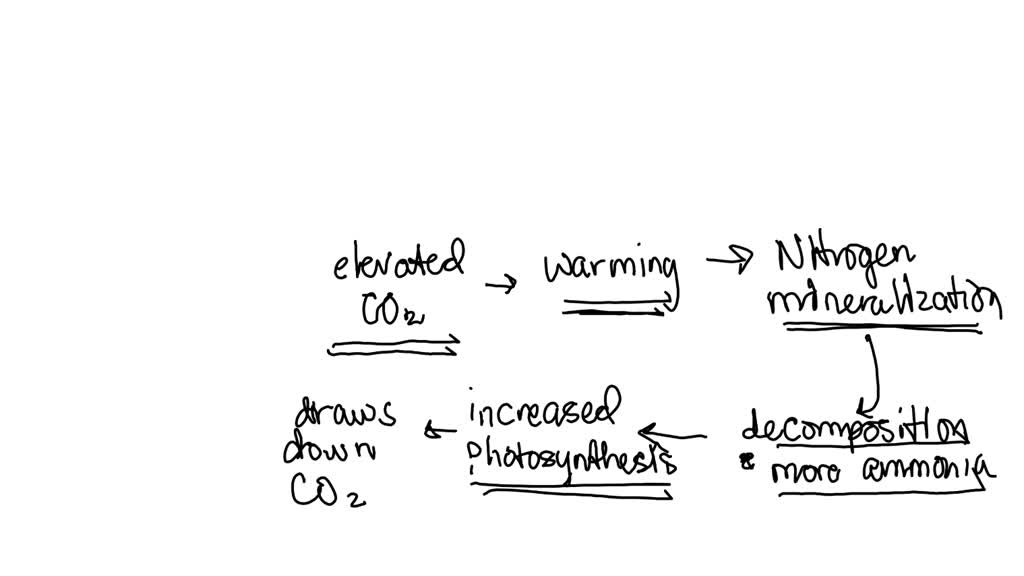 elevated → warming → Nitrogen
CO₂ mineralization
draws ← increased ← decomposition
down photosynthesis & more ammonia
CO₂